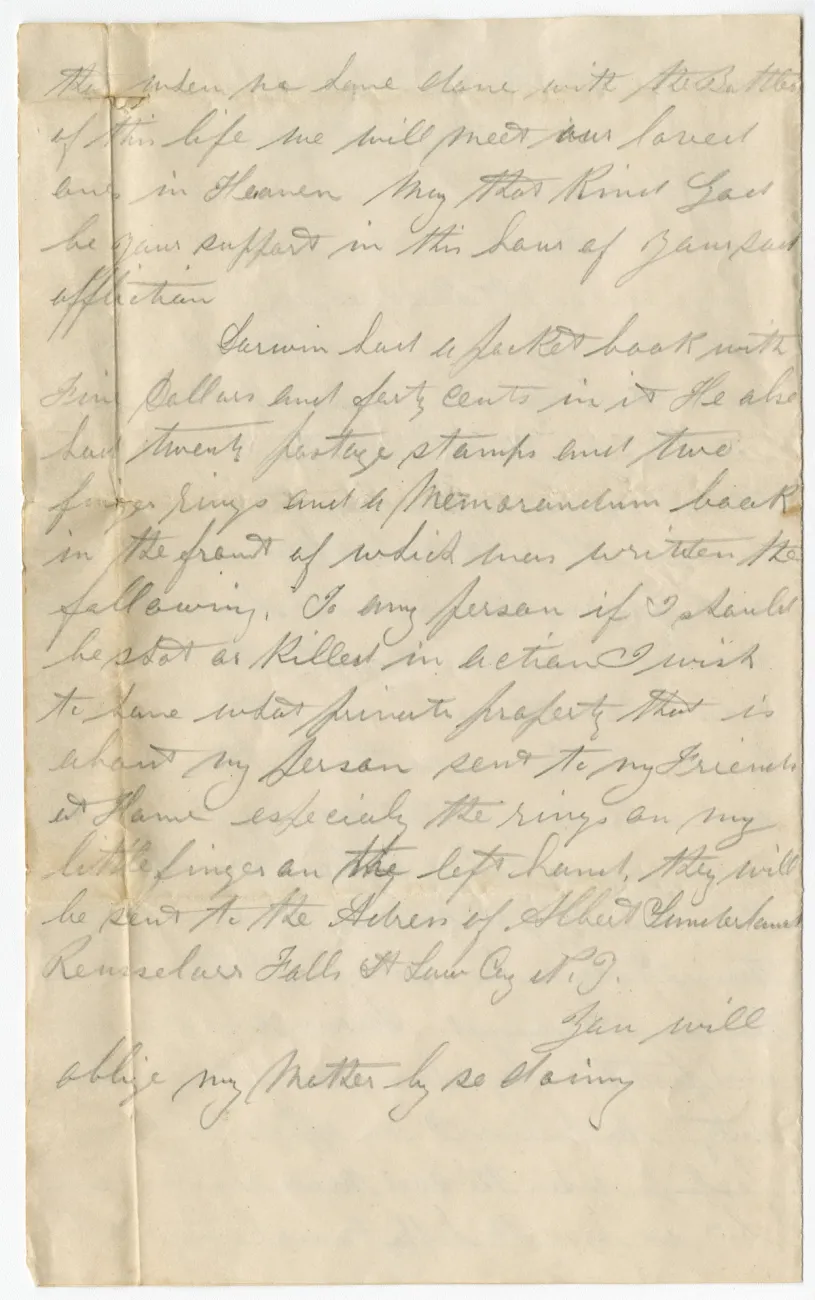 that when we have done with the Battles
of this life we will meet our loved
ones in Heaven May that Kind God
be your support in this hour of your sad
affliction
Darwin had a pocket book with
Five Dollars and forty cents in it He also
had twenty postage stamps and two
finger rings and a Memorandum book
in the front of which was written the
following. To any person if I should
be shot or Killed in action I wish
to have what private property that is
about my person sent to my Friends
at Home especialy the rings on my
little finger on the left hand, they will
be sent to the Adress of Albert
Rensselaer Falls St Law Co N.Y.
You will
oblige my Mother by so doing